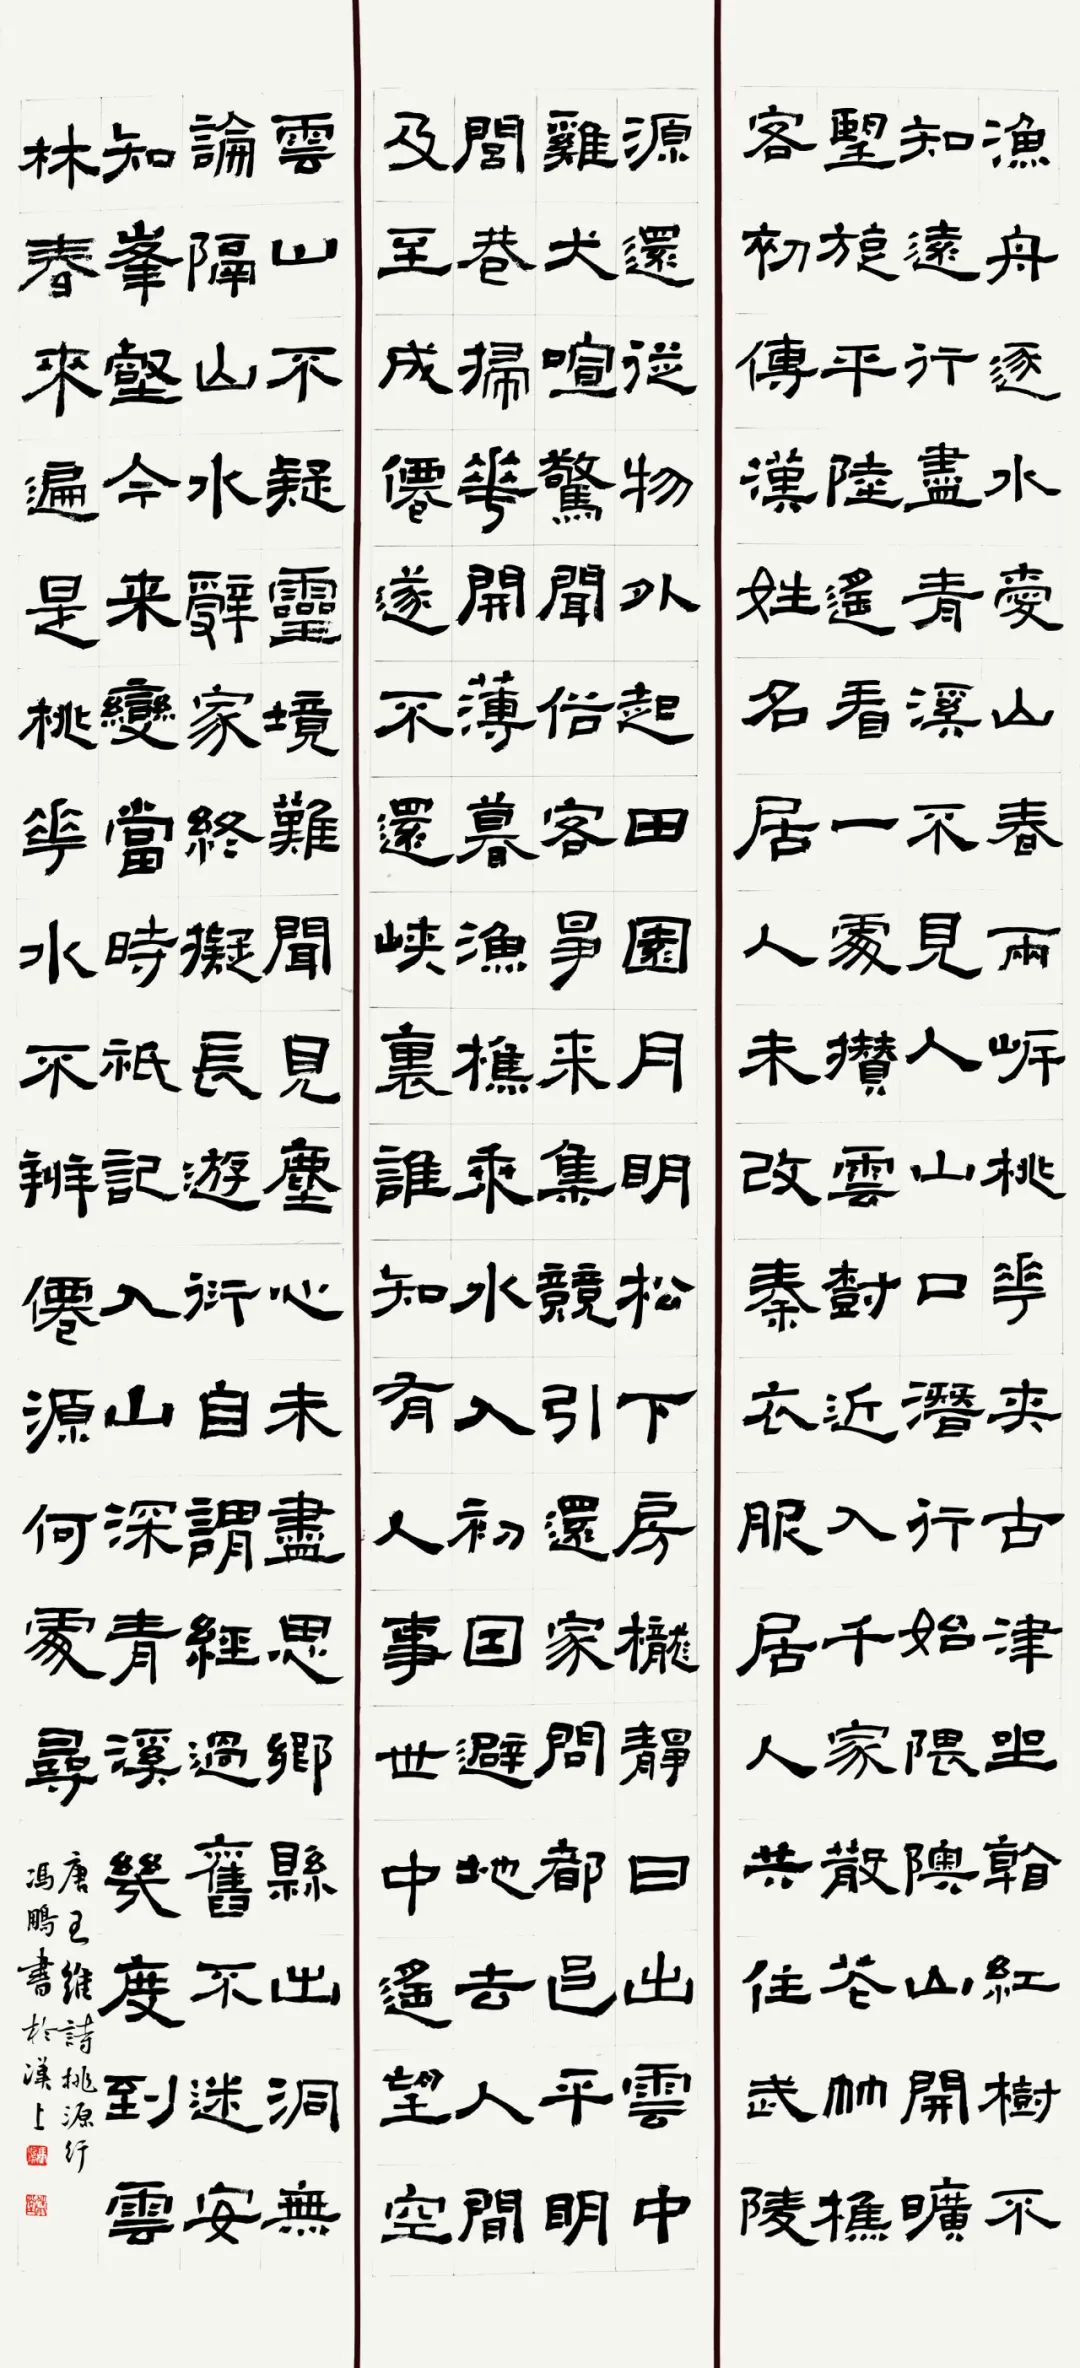 漁舟逐水愛山春兩岸桃華夾古津坐看紅樹不
知遠行盡青溪不見人山口潛行始隈隩山開曠
望旋平陸遙看一處攢雲樹近入千家散花竹樵
客初傳漢姓名居人未改秦衣服居人共住武陵
源還從物外起田園月明松下房櫳靜日出雲中
雞犬喧驚聞俗客爭来集競引還家問都邑平明
閭巷掃華開薄暮漁樵乘水入初因避地去人間
及至成僊遂不還峽裏誰知有人事世中遙望空
雲山不疑靈境難聞見塵心未盡思鄉縣出洞無
論隔山水辭家終擬長遊衍自謂經過舊不迷安
知峯壑今来變當時祇記入山深青溪幾度到雲
林春來遍是桃華水不辨僊源何處尋
唐王維詩桃源行
馮鵬書於漢上